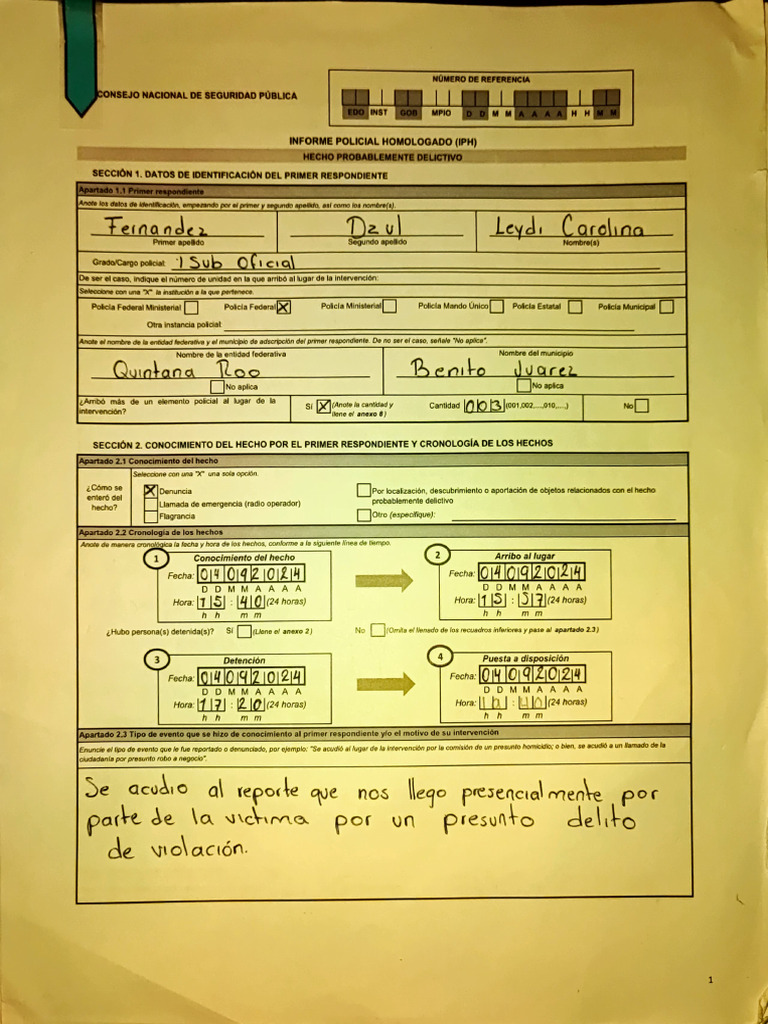 CONSEJO NACIONAL DE SEGURIDAD PÚBLICA
NÚMERO DE REFERENCIA
EDO INST GOB MPIO D D M M A A A A H H M M
INFORME POLICIAL HOMOLOGADO (IPH)
HECHO PROBABLEMENTE DELICTIVO
SECCIÓN 1. DATOS DE IDENTIFICACIÓN DEL PRIMER RESPONDIENTE
Apartado 1.1 Primer respondiente
Anote los datos de identificación, empezando por el primer y segundo apellido, así como los nombre(s).
Fernandez Dzul Leydi Carolina
Primer apellido Segundo apellido Nombre(s)
Grado/Cargo policial: 1 Sub Oficial
De ser el caso, indique el número de unidad en la que arribó al lugar de la intervención:
Seleccione con una "X" la institución a la que pertenece.
Policía Federal Ministerial Policía Federal X Policía Ministerial Policía Mando Único Policía Estatal Policía Municipal
Otra instancia policial:
Anote el nombre de la entidad federativa y el municipio de adscripción del primer respondiente. De no ser el caso, señale "No aplica".
Nombre de la entidad federativa Nombre del municipio
Quintana Roo Benito Juarez
No aplica No aplica
¿Arribó más de un elemento policial al lugar de la intervención? Sí X (Anote la cantidad y llene el anexo 6) Cantidad 003 (001,002,...,010,...,) No
SECCIÓN 2. CONOCIMIENTO DEL HECHO POR EL PRIMER RESPONDIENTE Y CRONOLOGÍA DE LOS HECHOS
Apartado 2.1 Conocimiento del hecho
Seleccione con una "X" una sola opción.
¿Cómo se enteró del hecho?
X Denuncia
Llamada de emergencia (radio operador)
Flagrancia
Por localización, descubrimiento o aportación de objetos relacionados con el hecho
probablemente delictivo
Otro (especifique):
Apartado 2.2 Cronología de los hechos
Anote de manera cronológica la fecha y hora de los hechos, conforme a la siguiente línea de tiempo.
1 Conocimiento del hecho
Fecha: 04092024
D D M M A A A A
Hora: 15:40 (24 horas)
h h m m
2 Arribo al lugar
Fecha: 04092024
D D M M A A A A
Hora: 15: (24 horas)
h h m m
¿Hubo persona(s) detenida(s)? Sí (Llene el anexo 2) No (Omita el llenado de los recuadros inferiores y pase al apartado 2.3)
3 Detención
Fecha: 04092024
D D M M A A A A
Hora: 17:20 (24 horas)
h h m m
4 Puesta a disposición
Fecha: 04092024
D D M M A A A A
Hora: (24 horas)
h h m m
Apartado 2.3 Tipo de evento que se hizo de conocimiento al primer respondiente y/o el motivo de su intervención
Enuncie el tipo de evento que le fue reportado o denunciado, por ejemplo: "Se acudió al lugar de la intervención por la comisión de un presunto homicidio; o bien, se acudió a un llamado de la
ciudadanía por presunto robo a negocio".
Se acudio al reporte que nos llego presencialmente por
parte de la victima por un presunto delito
de violación.
1